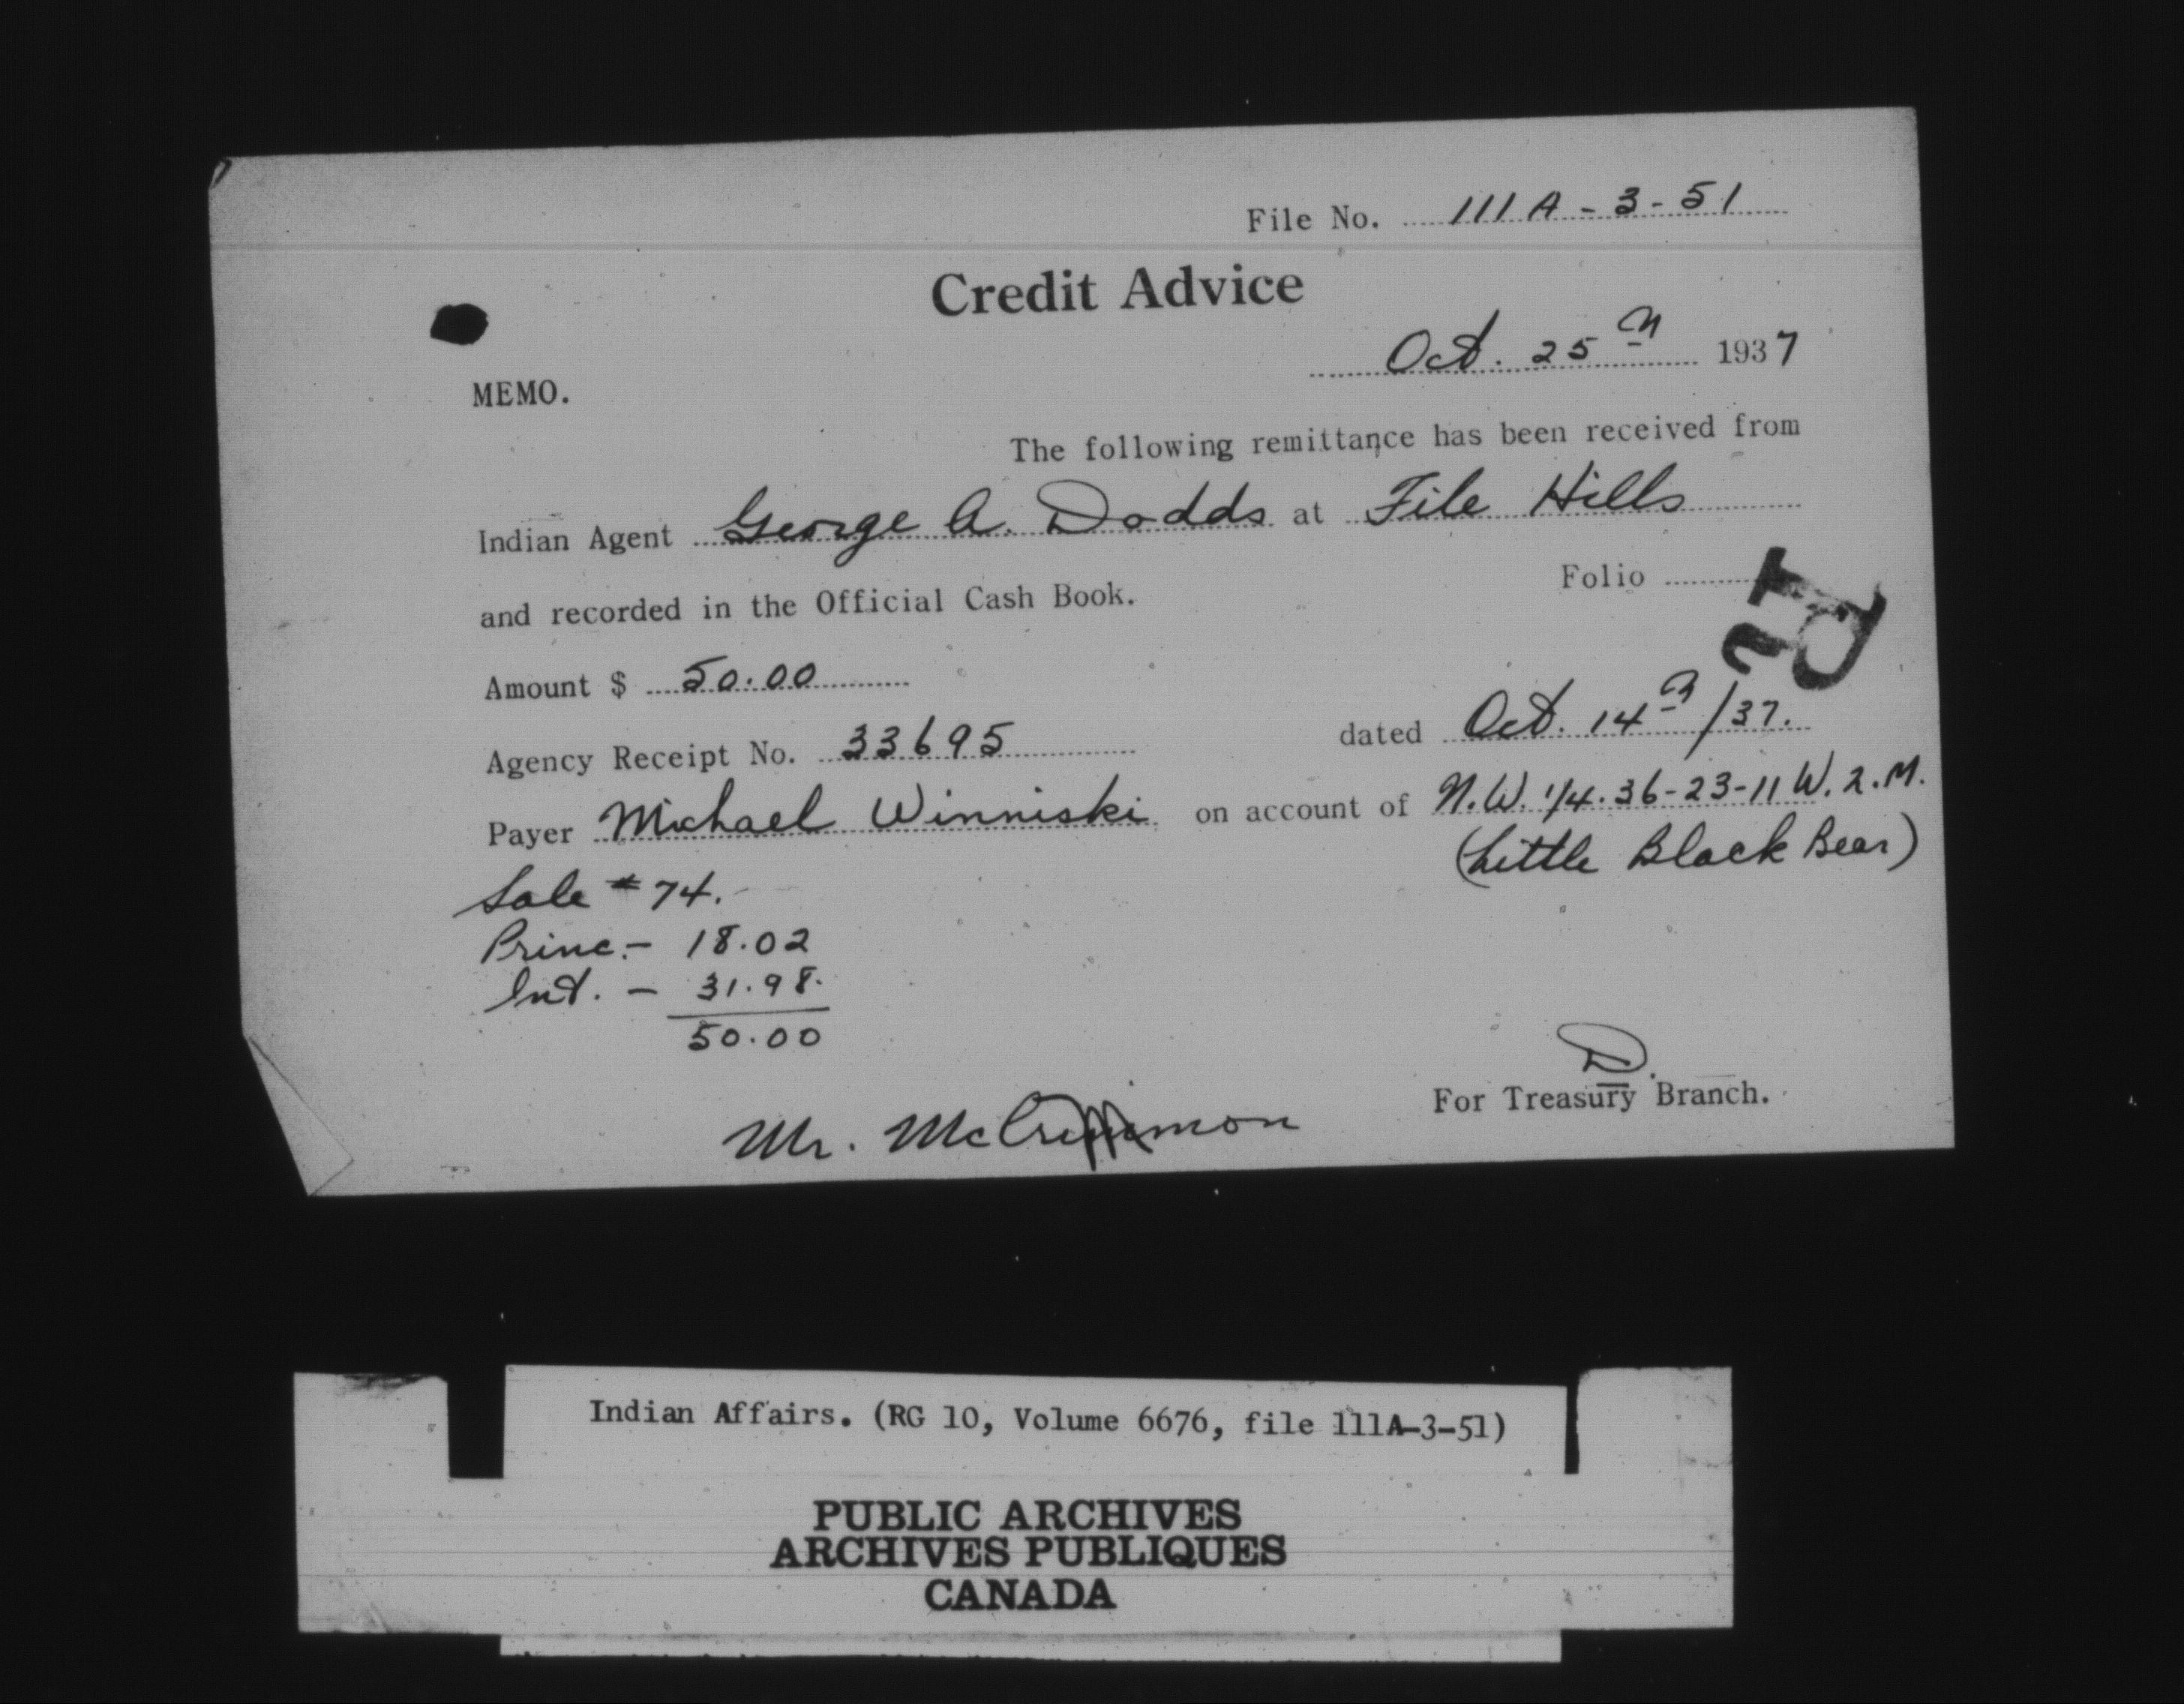 File No. 111A-3-51
Credit Advice
Oct. 25th 1937
MEMO.
The following remittance has been received from
Indian Agent George A. Dodds at File Hills
and recorded in the Official Cash Book.
Folio
Amount $ 50.00
Agency Receipt No. 33695 dated Oct. 14th/37.
Payer Michael Winniski on account of N.W. 1/4.36-23-11 W.2.M.
(Little Black Bear)
Sale #74.
Princ.- 18.02
Int. - 31.98.
50.00
D.
For Treasury Branch.
Mr. McCrimmon
Indian Affairs. (RG 10, Volume 6676, file 111A-3-51)
PUBLIC ARCHIVES
ARCHIVES PUBLIQUES
CANADA